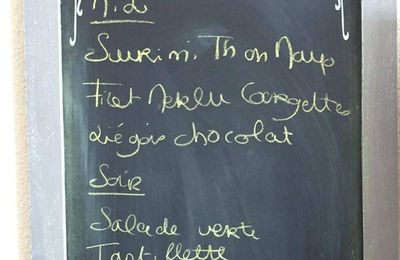 Midi
Surimi Thon Mayo
Filet Merlu Courgettes
Liégois chocolat
Soir
Salade verte
Tartiflette